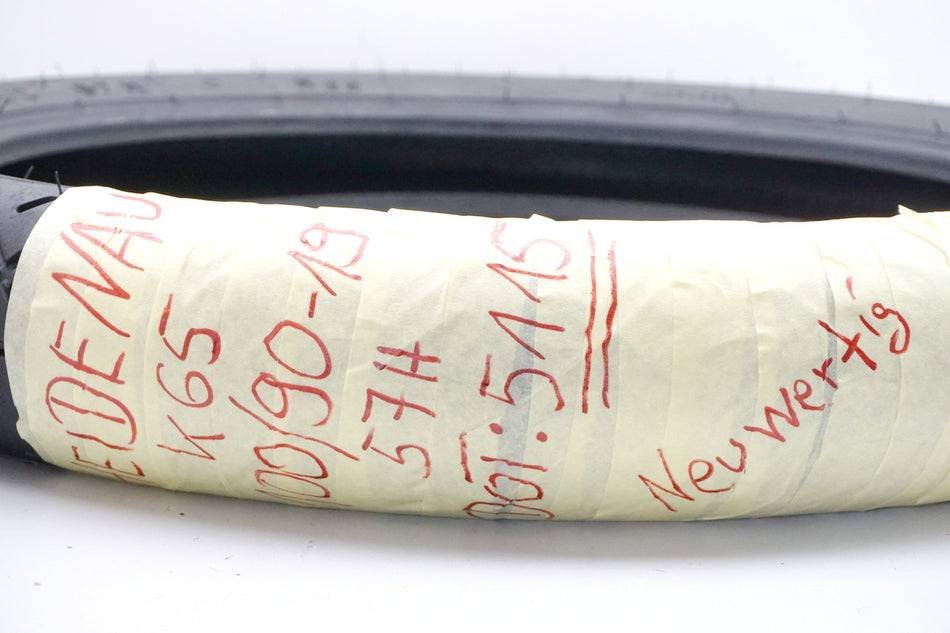 HEIDENAU
K65
100/90-19
57H
DOT: 5115
Neuwertig